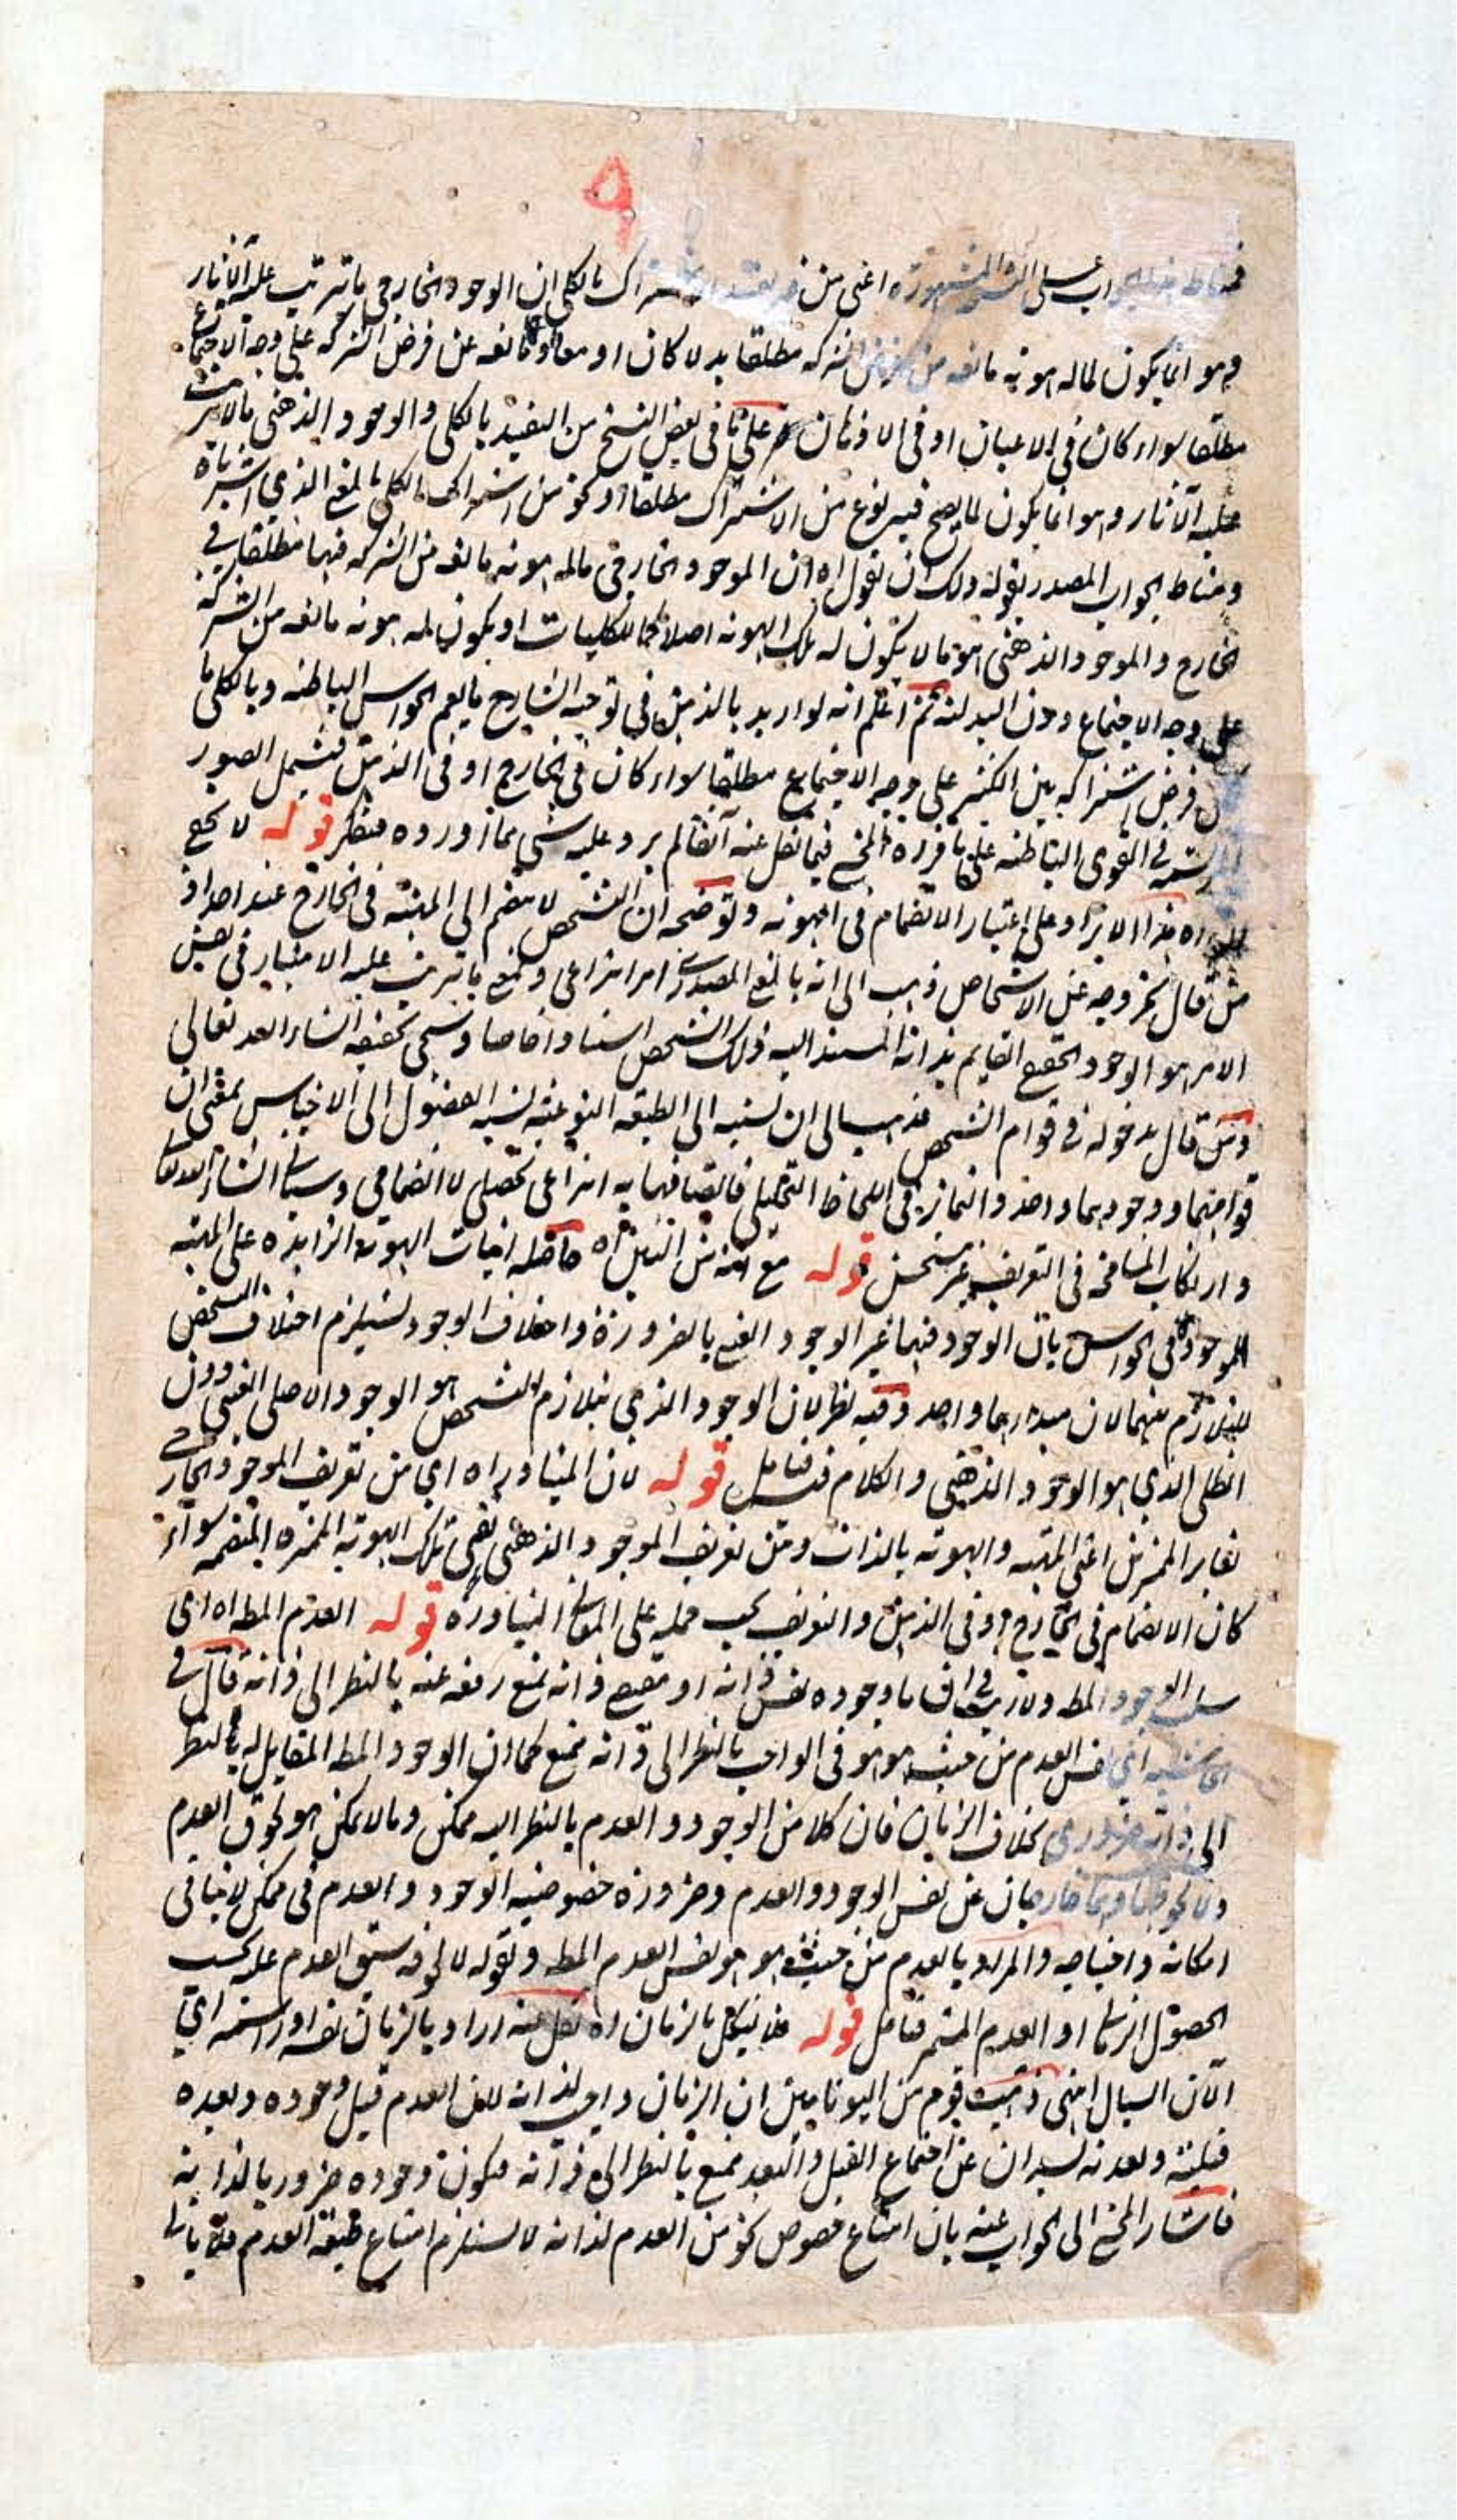 ٩
فمناط هذا الجواب على النسخ المشهورة اعني من غير تقييد الاشتراك بالكلي ان الوجود الخارجي ما تترتب عليه الآثار
وهو انما يكون لما له هوية مانعة من فرض الشركة مطلقا بدلا كان او معا او مانعة عن فرض الشركة على وجه الاجتماع
مطلقا سواء كان في الاعيان او في الاذهان على ما في بعض النسخ من التقييد بالكلي والوجود الذهني ما لا يترتب
عليه الآثار وهو انما يكون لما يصح فيه نوع من الاشتراك مطلقا او نحو من اشتراك الكلي بالمعنى الذي اشرناه
ومناط الجواب المصدر بقوله ولك ان تقول اه ان الموجود الخارجي ما له هوية مانعة من الشركة فيها مطلقا في
الخارج والموجود الذهني هو ما لا يكون له تلك الهوية اصلا كما للكليات او يكون له هوية مانعة من الشركة
على وجه الاجتماع دون البدلية ثم اعلم انه لو اريد بالذهن في توجيه الشارح ما يعم الحواس الباطنة وبالكلي ما
فرض اشتراكه بين الكثير على وجه الاجتماع مطلقا سواء كان في الخارج او في الذهن فتشمل الصور
المرتسمة في القوى الباطنة على ما قرره المحشي فيما نقل عنه آنفا لم يرد عليه شيء مما اورده فتفكر قوله لا يخفى
اه هذا الايراد على اعتبار الانضمام في الهوية وتوضيحه ان التشخص لا ينضم الى المهية في الخارج عند احد اذ
من قال بخروجه عن الاشخاص ذهب الى انه بالمعنى المصدري امر انتزاعي وبمعنى ما يترتب عليه الامتياز في نفس
الامر هو الوجود الحقيقي القايم بذاته المستند اليه ذلك الشخص استنادا خاصا وسيجي تحقيقه انشاء الله تعالى
ومن قال بدخوله في قوام الشخص ذهب الى ان نسبته الى الطبيعة النوعية نسبة الفصول الى الاجناس بمعنى ان
قوامهما ووجودهما واحد والتمايز في اللحاظ التحليلي فاتصافها به انتزاعي تحصيلي لا انضمامي وسياتي انشاء الله تعالى
وارتكاب المسامحة في التعريف غير مستحسن قوله مع انه من البين اه حاصله اثبات الهوية الزايدة على المهية
الموجودة في الحواس بان الوجود فيها غير الوجود العيني بالضرورة واختلاف الوجود يستلزم اختلاف التشخص
للتلازم بينهما لان مبدأهما واحد وفيه نظر لان الوجود الذي يلازم التشخص هو الوجود الاصلي العيني دون
الظلي الذي هو الوجود الذهني والكلام فيه فتامل قوله لان المتبادر اه اي من تعريف الموجود الخارجي
تغاير المميزين اعني المهية والهوية بالذات ومن تعريف الموجود الذهني نفي تلك الهوية المميزة المنضمة سواء
كان الانضمام في الخارج او في الذهن والتعريف يجب حمله على المعاني المتبادرة قوله العدم المطلق اه اي
سلب الوجود المط ولا ريب في ان ما وجوده نفس ذاته او مقتضى ذاته يمتنع رفعه عنه بالنظر الى ذاته قال في
الحاشية اي نفس العدم من حيث هو هو في الواجب بالنظر الى ذاته ممتنع كما ان الوجود المط المقابل له بالنظر
الى ذاته ضروري بخلاف الزمان فان كلا من الوجود والعدم بالنظر اليه ممكن وما لا يمكن هو لحوق العدم
ولا لحوقه وهما خارجان عن نفس الوجود والعدم وضرورة خصوصية الوجود والعدم في ممكن لا ينافي
امكانه واحتياجه والمراد بالعدم من حيث هو هو نفس العدم المط وبقوله لا لحوقه سبق العدم عليه بحسب
الحصول الزماني او العدم المستمر فتامل قوله فلا يشكل بالزمان اه نقل عنه اراد بالزمان نفسه او راسمه اي
الآن السيال انتهى ذهبت قوم من اليونانيين ان الزمان واجب لذاته لان العدم قبل وجوده وبعده
قبلية وبعدية تسدان عن اجتماع القبل والبعد ممتنع بالنظر الى ذاته فيكون وجوده ضروريا لذاته
فاشار المحشي الى الجواب عنه بان امتناع خصوص نحو من العدم لذاته لا يستلزم امتناع طبيعة العدم